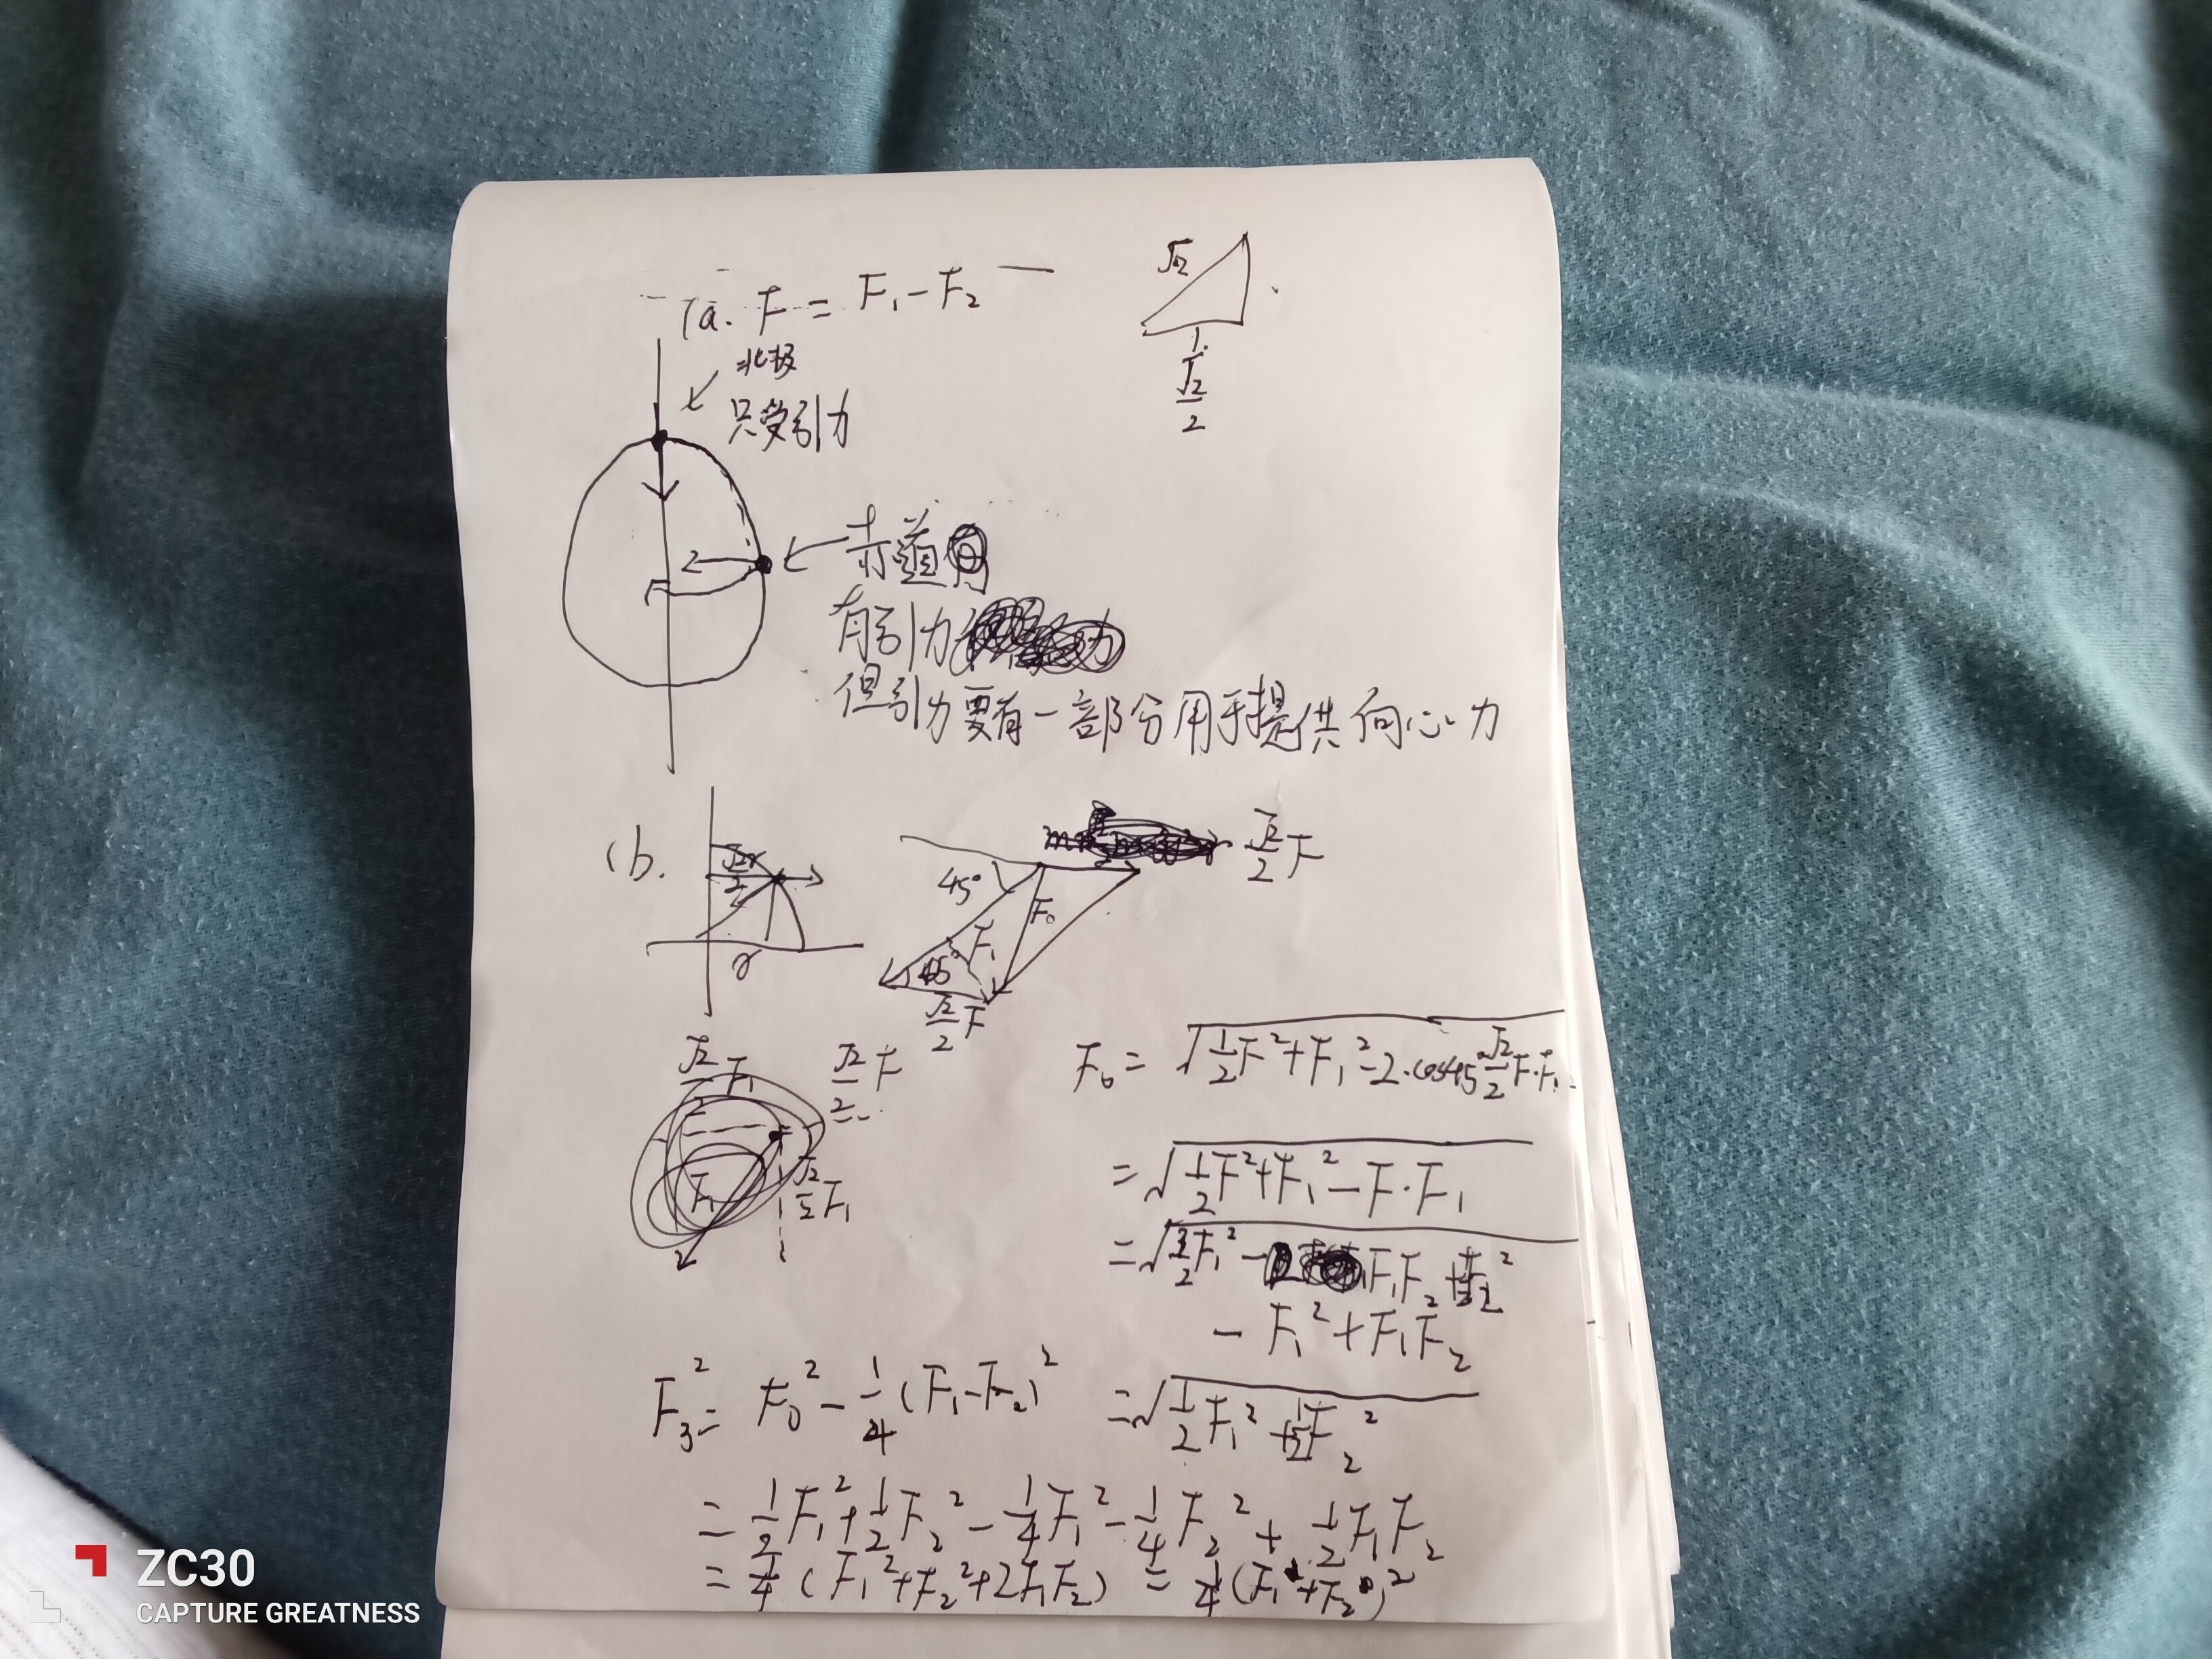 (a. F = F₁ - F₂
√2
1
√2/2
北极
只受引力
赤道
有引力
但引力要有一部分用于提供向心力
(b.
√2r/2
r
45°
F₀
F₁
45°
√2/2 F
√2/2 F
√2/2 F₁
√2/2 F
F₁
√2/2 F₁
F₀ = √(1/2 F² + F₁² - 2·cos45° √2/2 F·F₁)
= √(1/2 F² + F₁² - F·F₁)
- F₁² + F₁F₂
= √(1/2 F₁² + 1/2 F₂²)
F₃² = F₀² - 1/4 (F₁ - F₂)²
= 1/2 F₁² + 1/2 F₂² - 1/4 F₁² - 1/4 F₂² + 1/2 F₁F₂
= 1/4 (F₁² + F₂² + 2F₁F₂) = 1/4 (F₁ + F₂)²
ZC30
CAPTURE GREATNESS